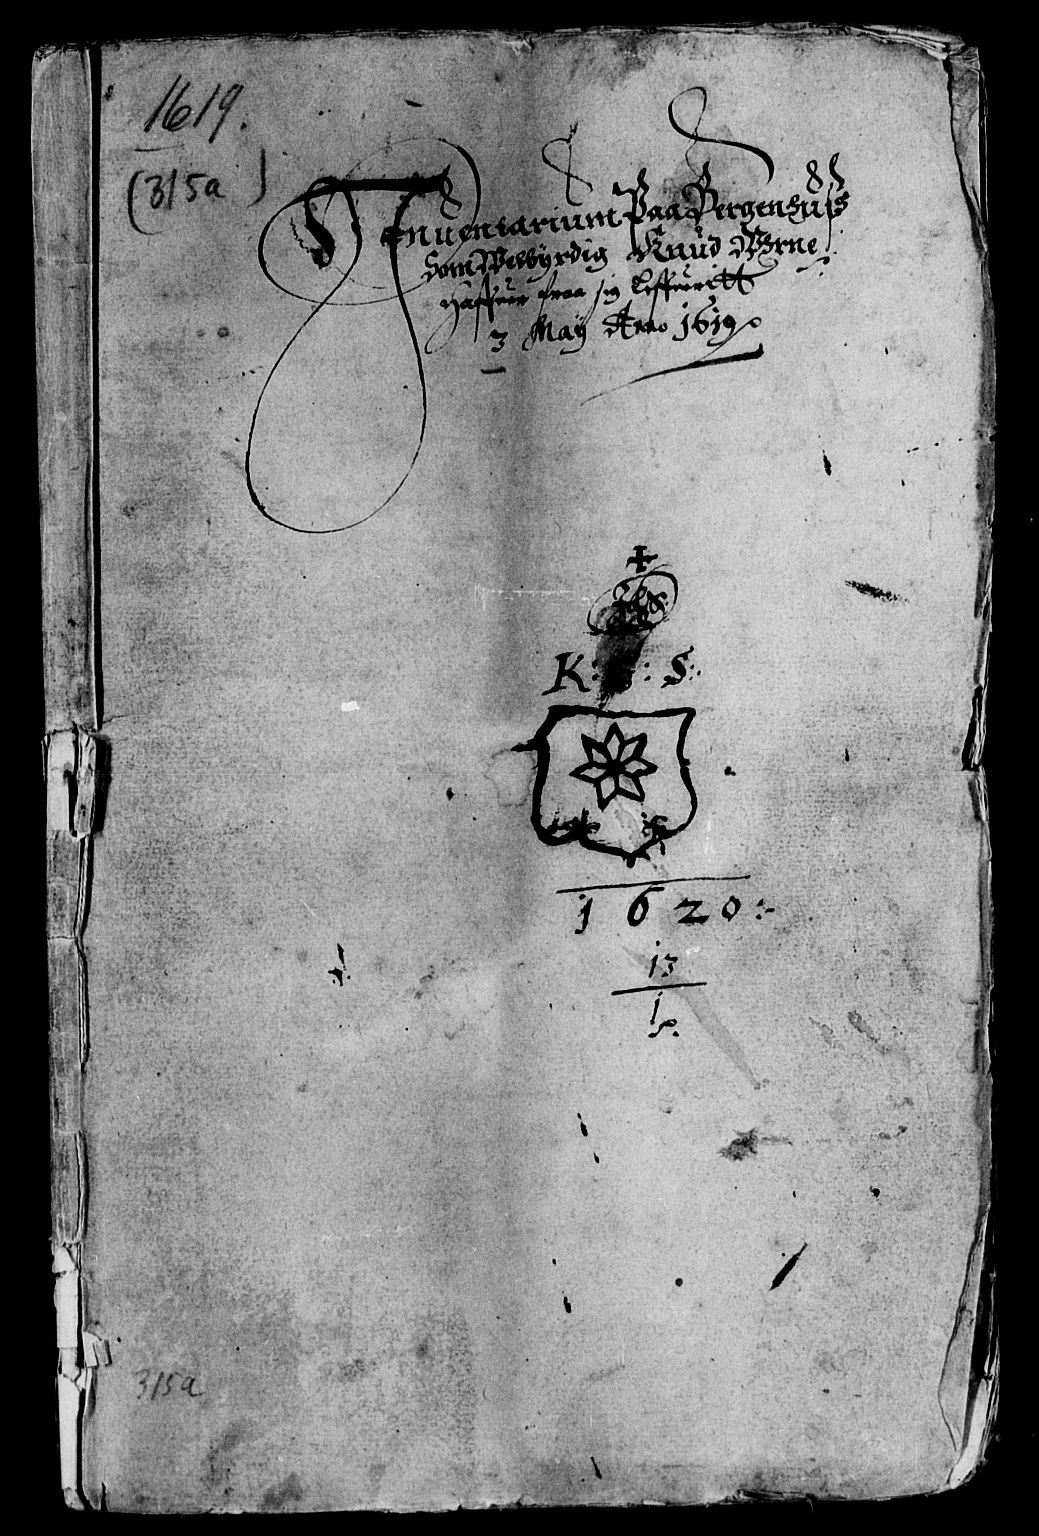 1619.
(315a)
Inuentarium Paa Bergenhuſs
Som Welbÿrdig Knud Vrne
Haffuer fraa sig Leffueritt
3 Maÿ Anno 1619
K: : S:
1620:
13
1
315a